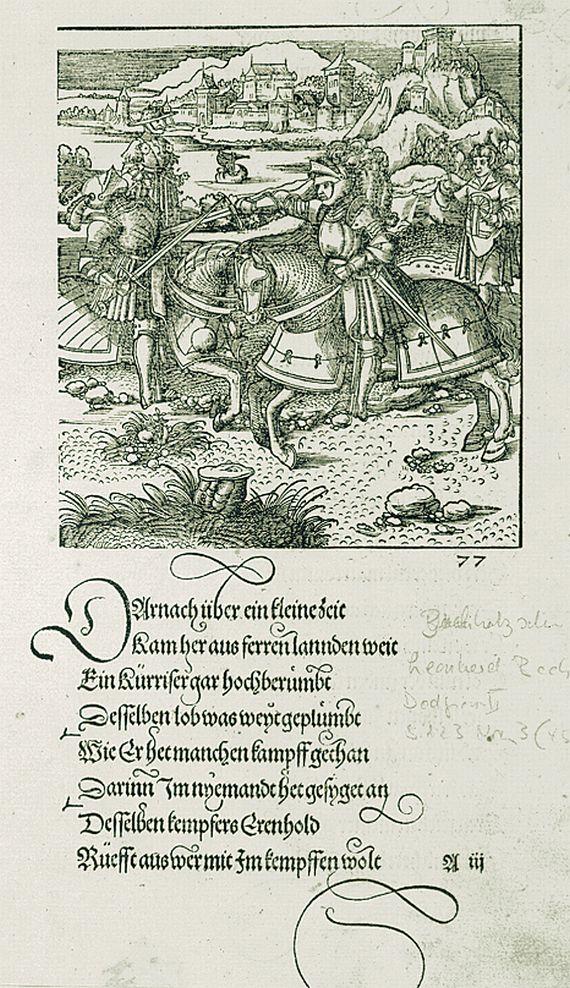 77
DArnach über ein kleine zeit
Kam her aus ferren lannden weit
Ein Kürriser gar hochberümbt
Desselben lob was weyt geplümbt
Wie Er het manchen kampff gethan
Darinn Im nyemandt het gesyget an
Desselben kempfers Erenhold
Rüefft aus wer mit Im kempffen wolt
A iij
Leonhard Beck
Dodgson II
S. 123 Nr. 3